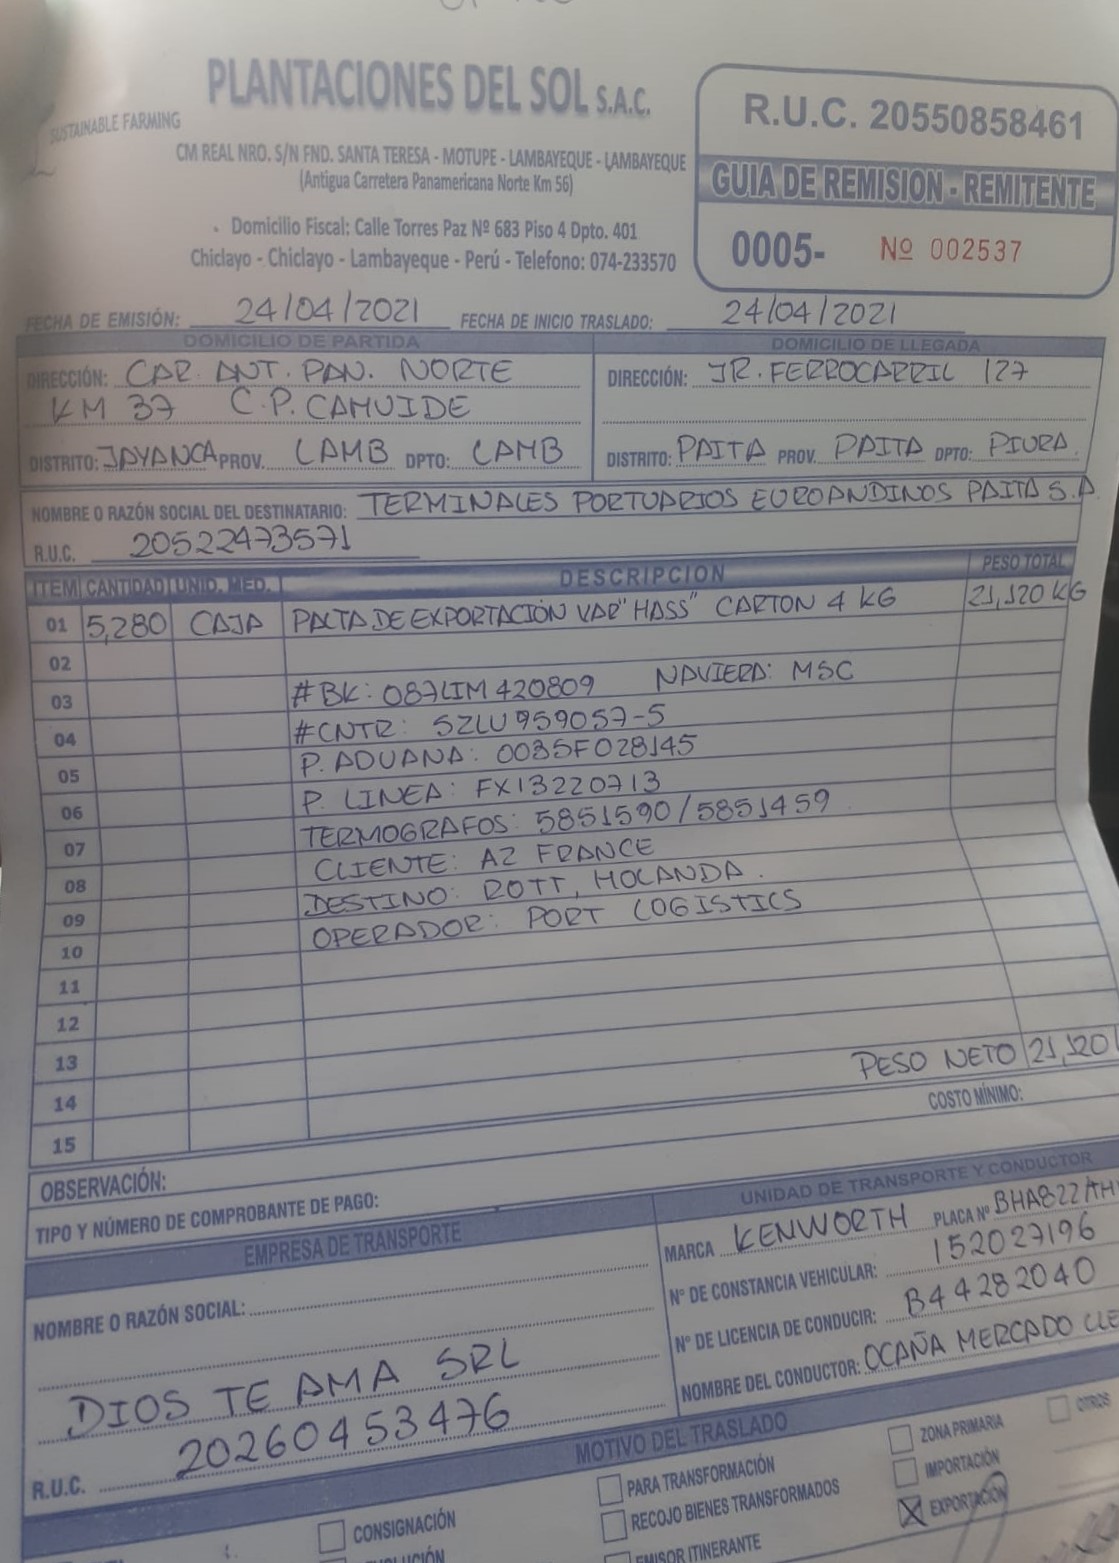 PLANTACIONES DEL SOL S.A.C.
SUSTAINABLE FARMING
CM REAL NRO. S/N FND. SANTA TERESA - MOTUPE - LAMBAYEQUE - LAMBAYEQUE
(Antigua Carretera Panamericana Norte Km 56)
Domicilio Fiscal: Calle Torres Paz Nº 683 Piso 4 Dpto. 401
Chiclayo - Chiclayo - Lambayeque - Perú - Telefono: 074-233570
R.U.C. 20550858461
GUIA DE REMISION - REMITENTE
0005- Nº 002537
FECHA DE EMISIÓN: 24/04/2021 FECHA DE INICIO TRASLADO: 24/04/2021
DOMICILIO DE PARTIDA
DIRECCIÓN: CAR. ANT. PAN. NORTE
KM 37 C.P. CAHUIDE
DISTRITO: JAYANCA PROV. LAMB DPTO: LAMB
DOMICILIO DE LLEGADA
DIRECCIÓN: JR. FERROCARRIL 127
DISTRITO: PAITA PROV. PAITA DPTO: PIURA.
NOMBRE O RAZÓN SOCIAL DEL DESTINATARIO: TERMINALES PORTUARIOS EUROANDINOS PAITA S.A
R.U.C. 20522473571
ITEM CANTIDAD UNID. MED. DESCRIPCION PESO TOTAL
01 5,280 CAJA PALTA DE EXPORTACIÓN VAR "HASS" CARTON 4 KG 21,120 KG
02
03 #BK: 087LIM420809 NAVIERA: MSC
04 #CNTR: SZLU959057-5
05 P. ADUANA: 0035F028145
06 P. LINEA: FX13220713
07 TERMOGRAFOS: 5851590/5851459
CLIENTE: AZ FRANCE
08 DESTINO: ROTT, HOLANDA.
09 OPERADOR: PORT LOGISTICS
10
11
12
13 PESO NETO 21,120
14
15
COSTO MÍNIMO:
OBSERVACIÓN:
TIPO Y NÚMERO DE COMPROBANTE DE PAGO:
EMPRESA DE TRANSPORTE
NOMBRE O RAZÓN SOCIAL:
DIOS TE AMA SRL
R.U.C. 20260453476
UNIDAD DE TRANSPORTE Y CONDUCTOR
MARCA KENWORTH PLACA Nº BHA822/
Nº DE CONSTANCIA VEHICULAR: 152027196
Nº DE LICENCIA DE CONDUCIR: B44282040
NOMBRE DEL CONDUCTOR: OCAÑA MERCADO CLE
MOTIVO DEL TRASLADO
CONSIGNACIÓN
PARA TRANSFORMACIÓN
RECOJO BIENES TRANSFORMADOS
EMISOR ITINERANTE
ZONA PRIMARIA
IMPORTACIÓN
EXPORTACIÓN
OTROS